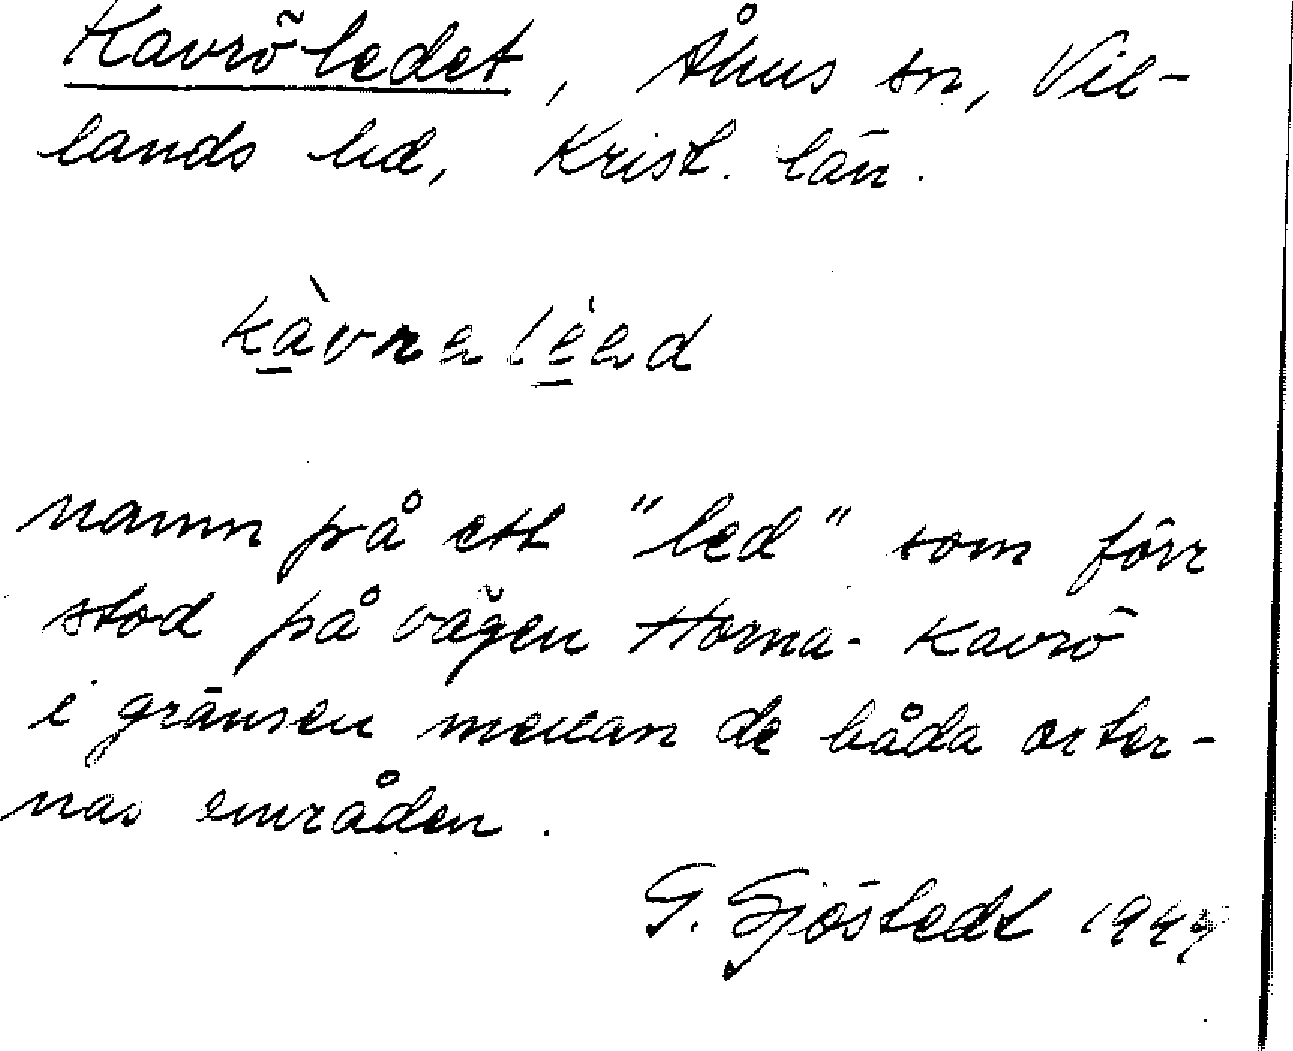 Kavröledet, Åhus sn, Vil-
lands hd, Krist. län.
kàvrelèed
namn på ett "led" som förr
stod på vägen Horna-Kavrö
i gränsen mellan de båda orter-
nas områden.
G. Sjöstedt